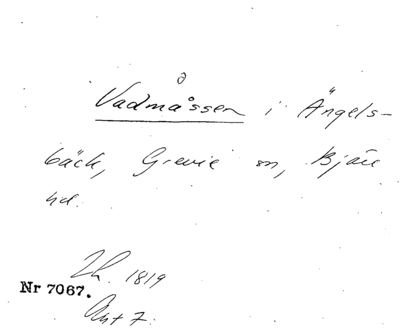 Vadmåssen i Ängels-
bäck, Grevie sn, Bjäre
hd.
Lh. 1819
Nr 7067.
Akt 7.